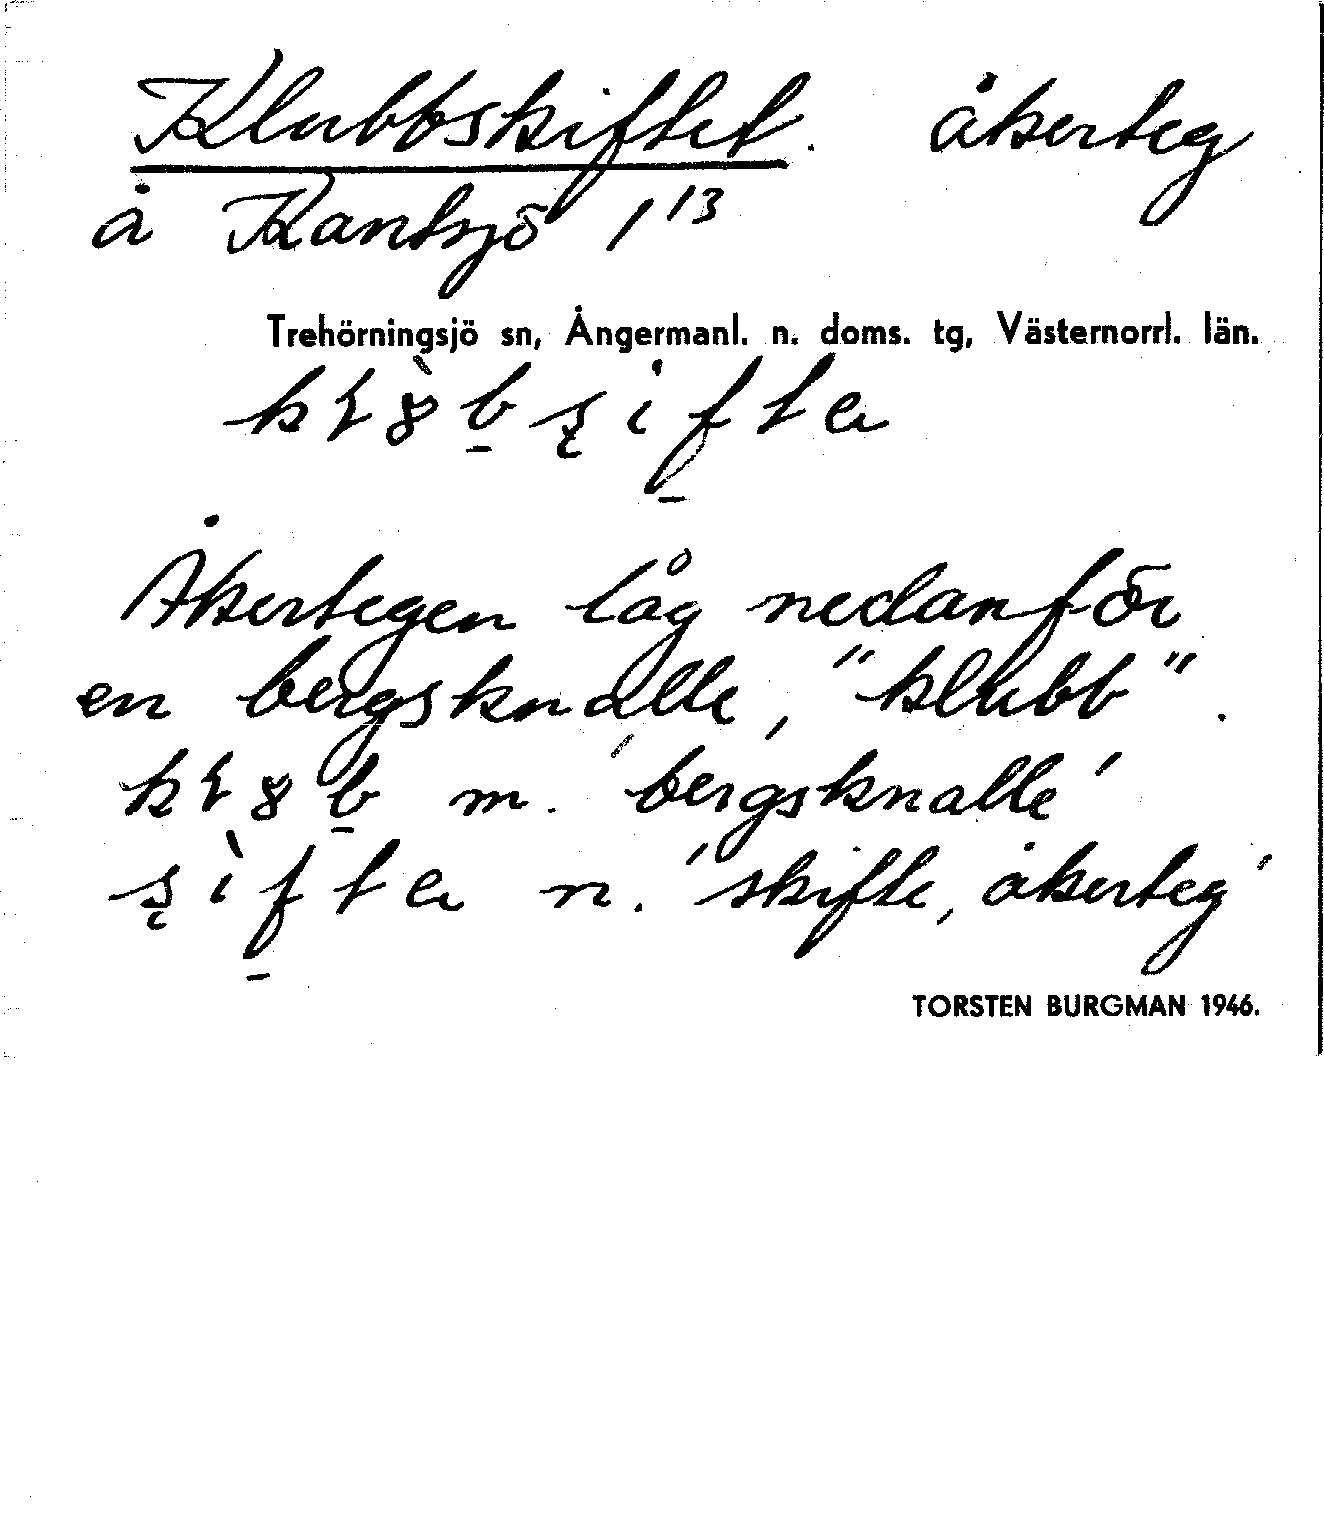 Klubbskiftet. åkerteg
å Kantsjö 1 13
Trehörningsjö sn, Ångermanl. n. doms. tg, Västernorrl. län.
Åkertegen låg nedanför
en bergsknalle, "klubb".
m. 'bergsknalle'
n. 'skifte, åkerteg'
TORSTEN BURGMAN 1946.